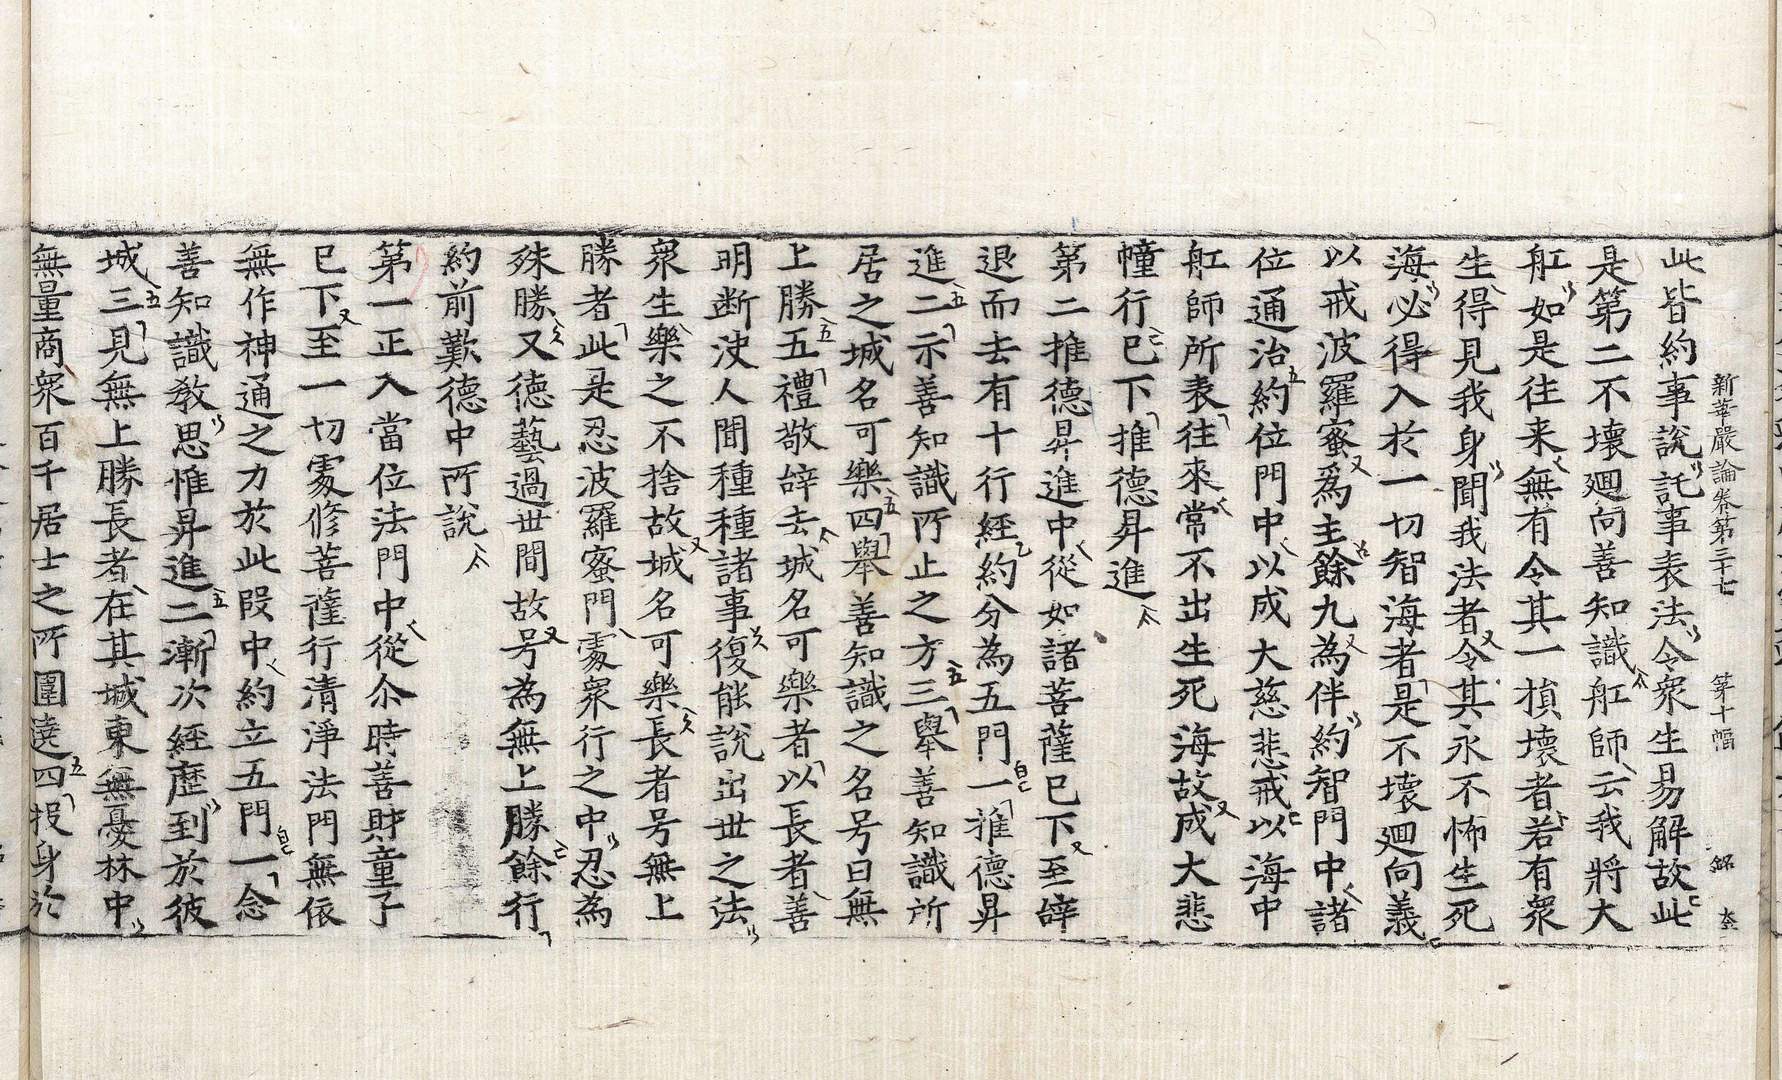 新華嚴論卷第三十七 第十幅 銘 叁
此皆約事說託事表法令衆生易解故此
是第二不壞廻向善知識舡師云我將大
舡如是往来無有令其一損壞者若有衆
生得見我身聞我法者令其永不怖生死
海必得入於一切智海者是不壞廻向義
以戒波羅蜜爲主餘九為伴約智門中諸
位通治約位門中以成大慈悲戒以海中
舡師所表往來常不出生死海故成大悲
幢行已下推德昇進
第二推德昇進中從如諸菩薩已下至辝
退而去有十行經約分為五門一推德昇
進二示善知識所止之方三舉善知識所
居之城名可樂四舉善知識之名号曰無
上勝五禮敬辝去城名可樂者以長者善
明断决人間種種諸事復能說出世之法
衆生樂之不捨故城名可樂長者号無上
勝者此是忍波羅蜜門處衆行之中忍為
殊勝又德藝過世間故号為無上勝餘行
約前歎德中所說
第一正入當位法門中從尒時善財童子
已下至一切處修菩薩行清淨法門無依
無作神通之力於此段中約立五門一念
善知識教思惟昇進二漸次經歷到於彼
城三見無上勝長者在其城東無憂林中
無量商衆百千居士之所圍遶四投身於